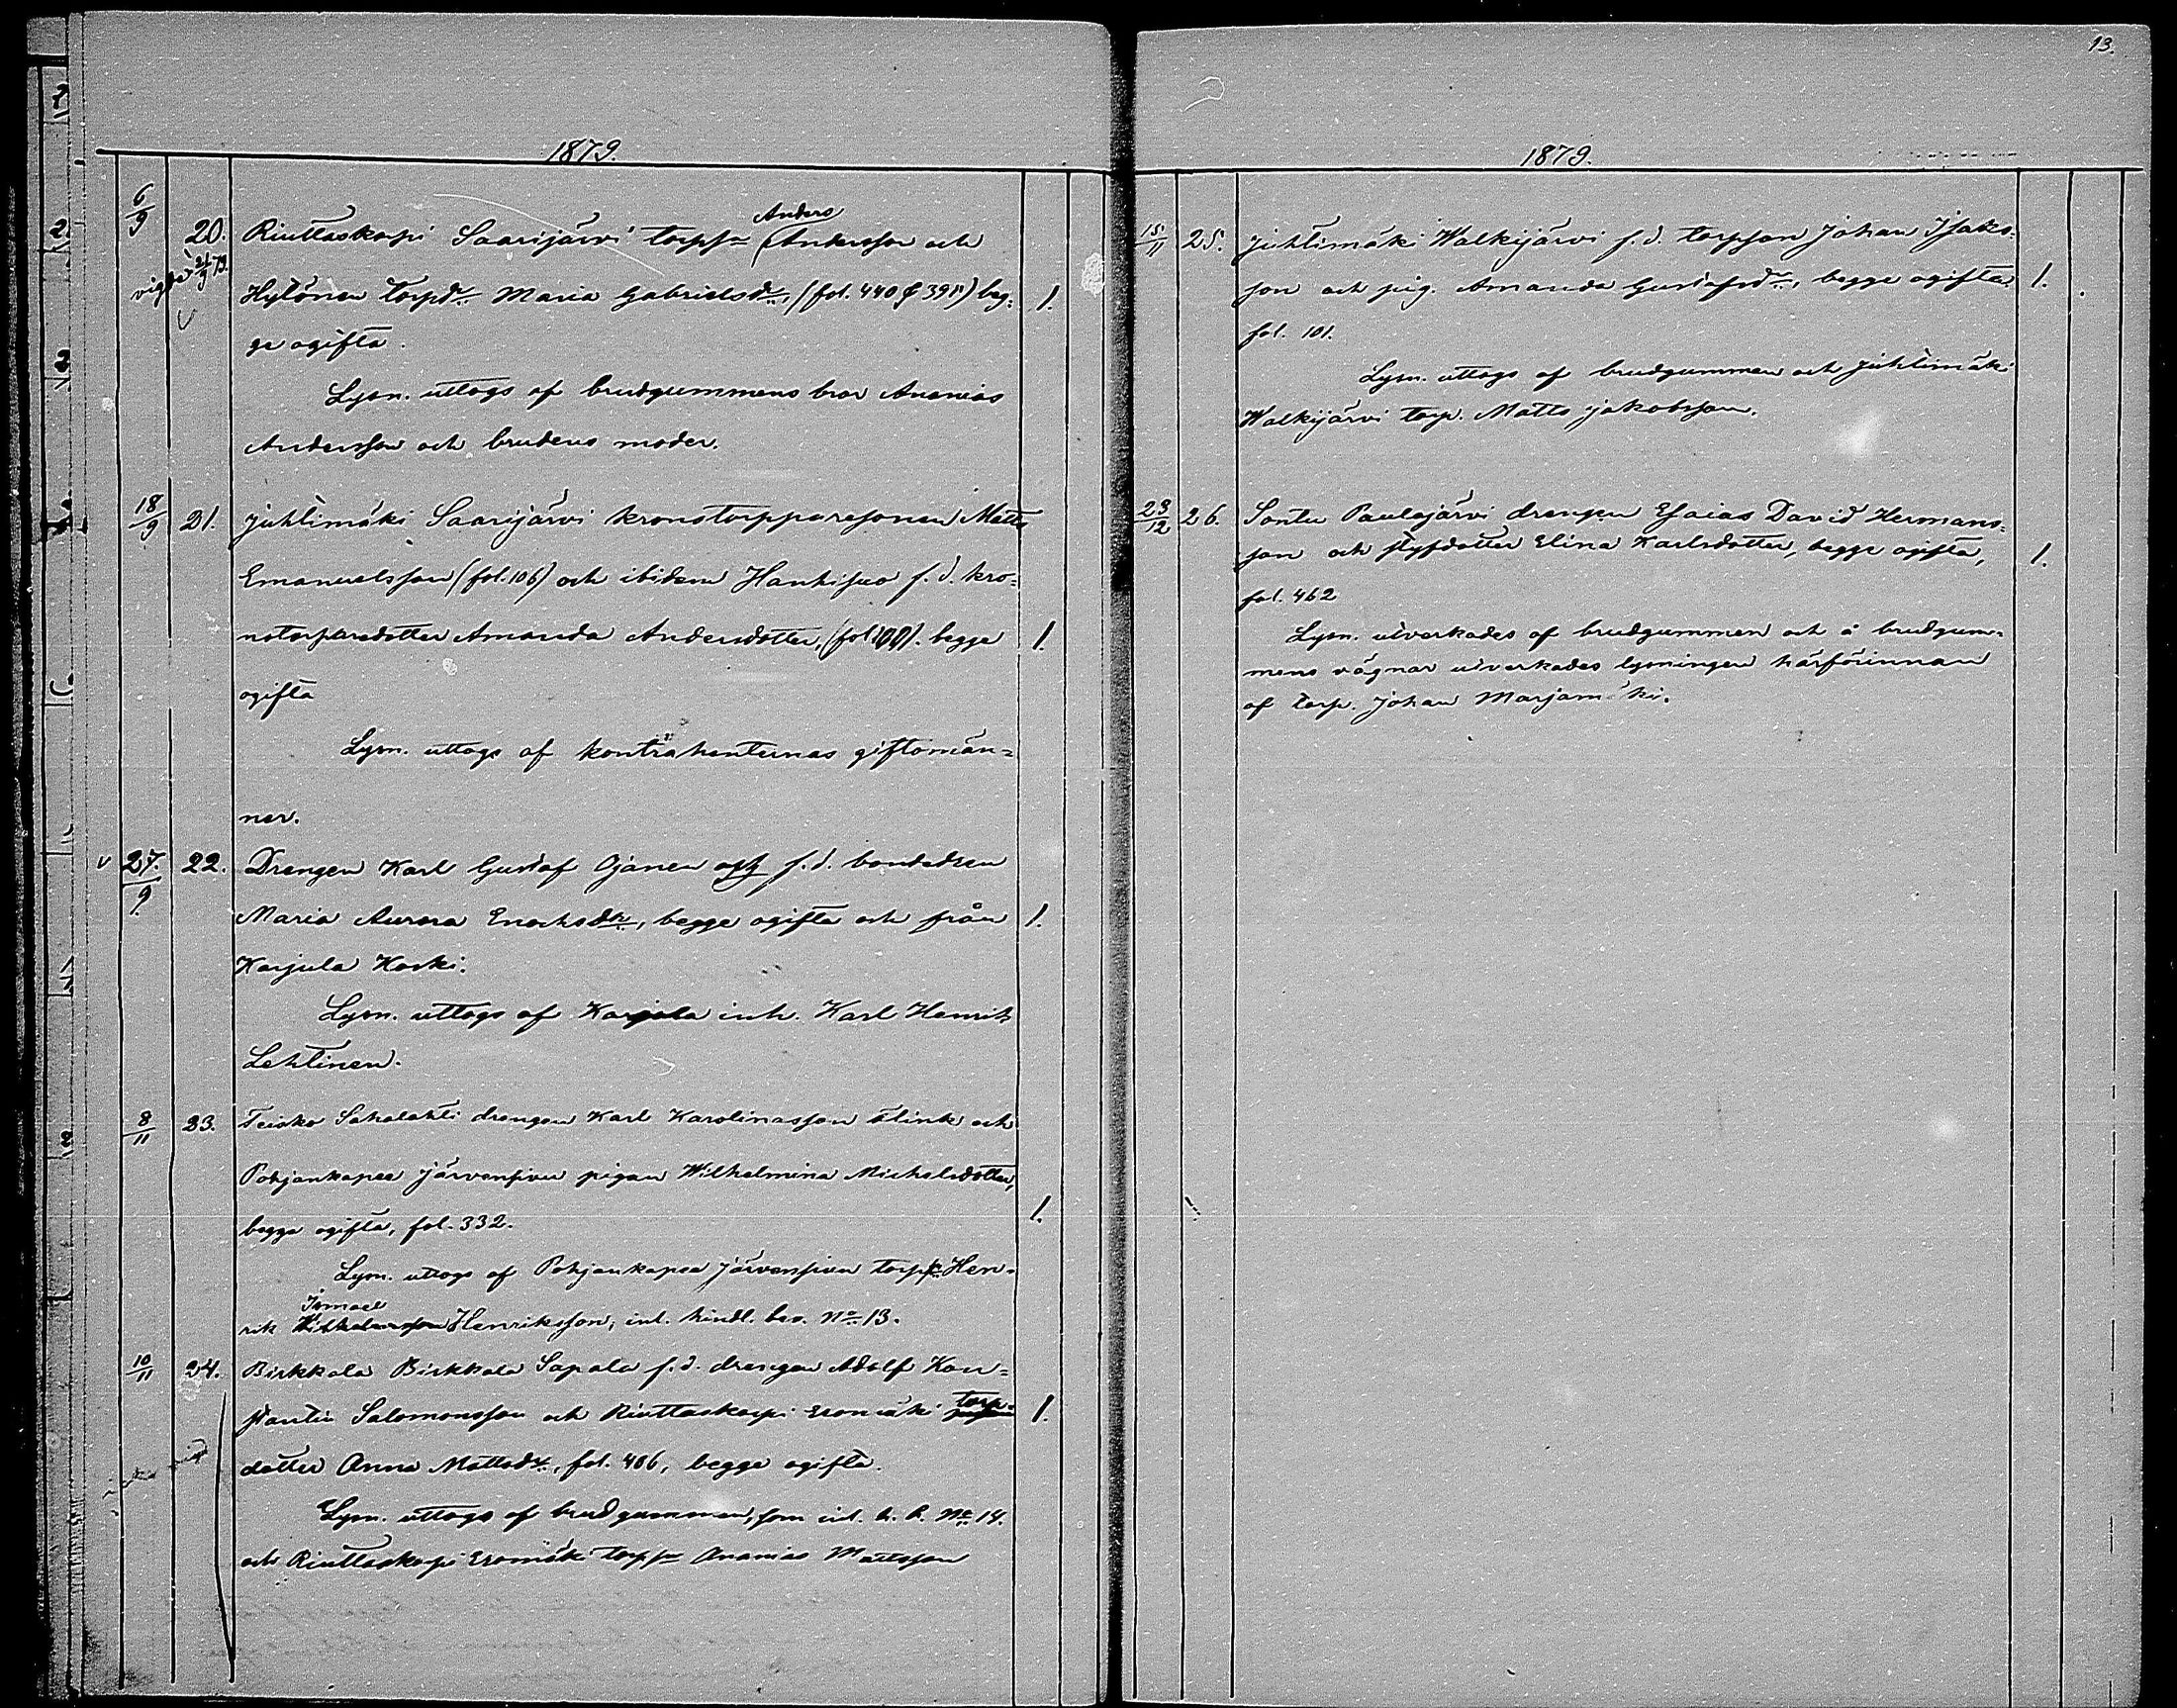 1879.
6/9 20. Riuttaskorpi Saarijärvi torpsn Anders Andersson och
vigda 21/9 79. Hytönen torpdr Maria Gabrielsdr, (fol. 440 & 395) beg- 1.
ge ogifta.
Lysn. uttogs af brudgummens bror Ananias
Andersson och brudens moder.
18/9 21. Juhtimäki Saarijärvi kronotorpparesonen Matts
Emanuelsson (fol. 106) och ibidem Hankisuo f. d. kro=
notorparedotter Amanda Andersdotter, begge 1.
ogifta
Lysn. uttogs af kontrahenternas giftomän=
ner.
v 27/9. 22. Drengen Karl Gustaf Ojanen och f. d. bondedren
Maria Aurora Enochsdr, begge ogifta och från 1.
Karjula Koski.
Lysn. uttogs af Karjula inh. Karl Henrik
Lehtinen.
8/11 23. Teisko Sakalahti drengen Karl Karolinasson Flink och
Pohjankapee Järvensivu pigan Wilhelmina Michelsdotter,
begge ogifta, fol. 332. 1.
Lysn. uttogs af Pohjankapee Järvensivu torpp. Hen=
Ismael
rik Henriksson, inl. hindl. bev. No 13.
10/11 24. Birkkala Birkkala Sapala f. d. drengen Adolf Kon=
stantin Salomonsson och Riuttaskorpi Eromäki torp= 1.
dotter Anna Mattsdr., fol. 406, begge ogifta.
Lysn. uttogs af brudgummen, som inl. h. b. No 14.
och Riuttaskorpi Eromäki torpsn Ananias Mattsson
13.
1879.
15/11 25. Juhtimäki Walkijärvi f. d. torpson Johan Isaks=
son och pig. Amanda Gustafsdr, begge ogifta 1.
fol. 101.
Lysn. uttogs af brudgummen och Juhtimäki
Walkijärvi torp. Matts Jakobsson.
23/12 26. Sontu Paulajärvi drengen Esaias David Hermans=
son och styfdotter Elina Karlsdotter, begge ogifta, 1.
fol. 462
Lysn. utverkades af brudgummen och å brudgum=
mens vägnar utverkades lysningen härförinnan
af torp. Johan Marjamäki.